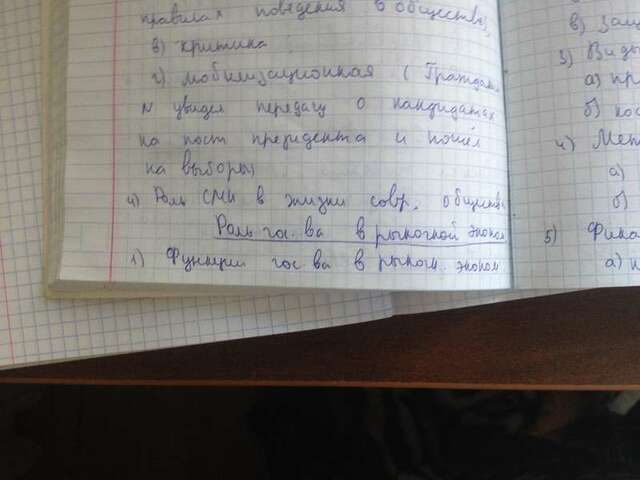 правилах поведения в обществе,
в) критика
г) мобилизационная (Граждан.
N увидел передачу о кандидатах
на пост президента и пошёл
на выборы)
4) Роль СМИ в жизни совр. обществ
Роль гос.ва в рыночной эконом
1) Функции гос.ва в рыноч. эконом
3) Виды
а) пр
б) кос
4)
а)
б)
5)
а)